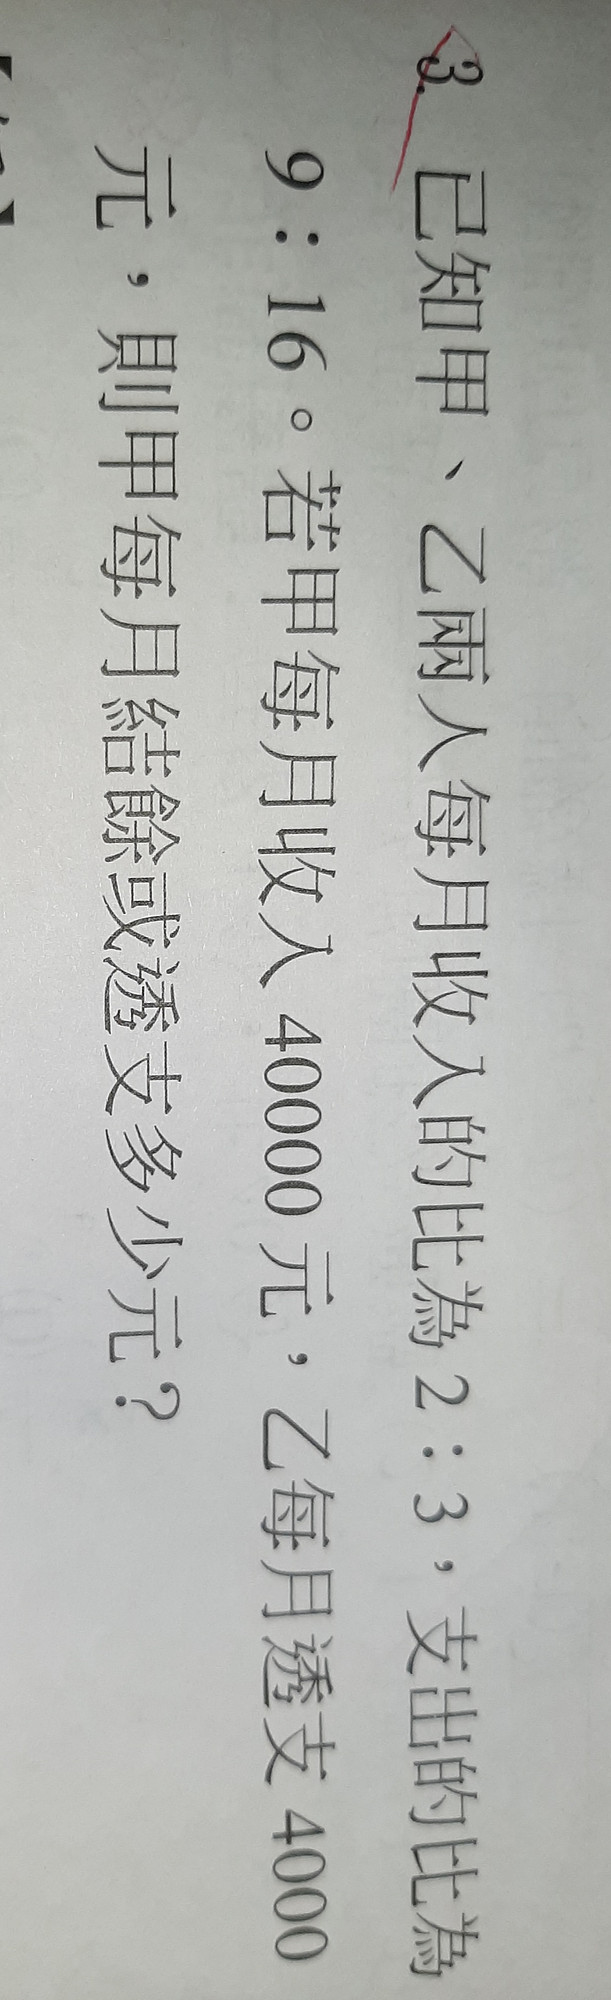 3. 已知甲、乙兩人每月收入的比為 2：3，支出的比為
9：16。若甲每月收入 40000 元，乙每月透支 4000
元，則甲每月結餘或透支多少元？